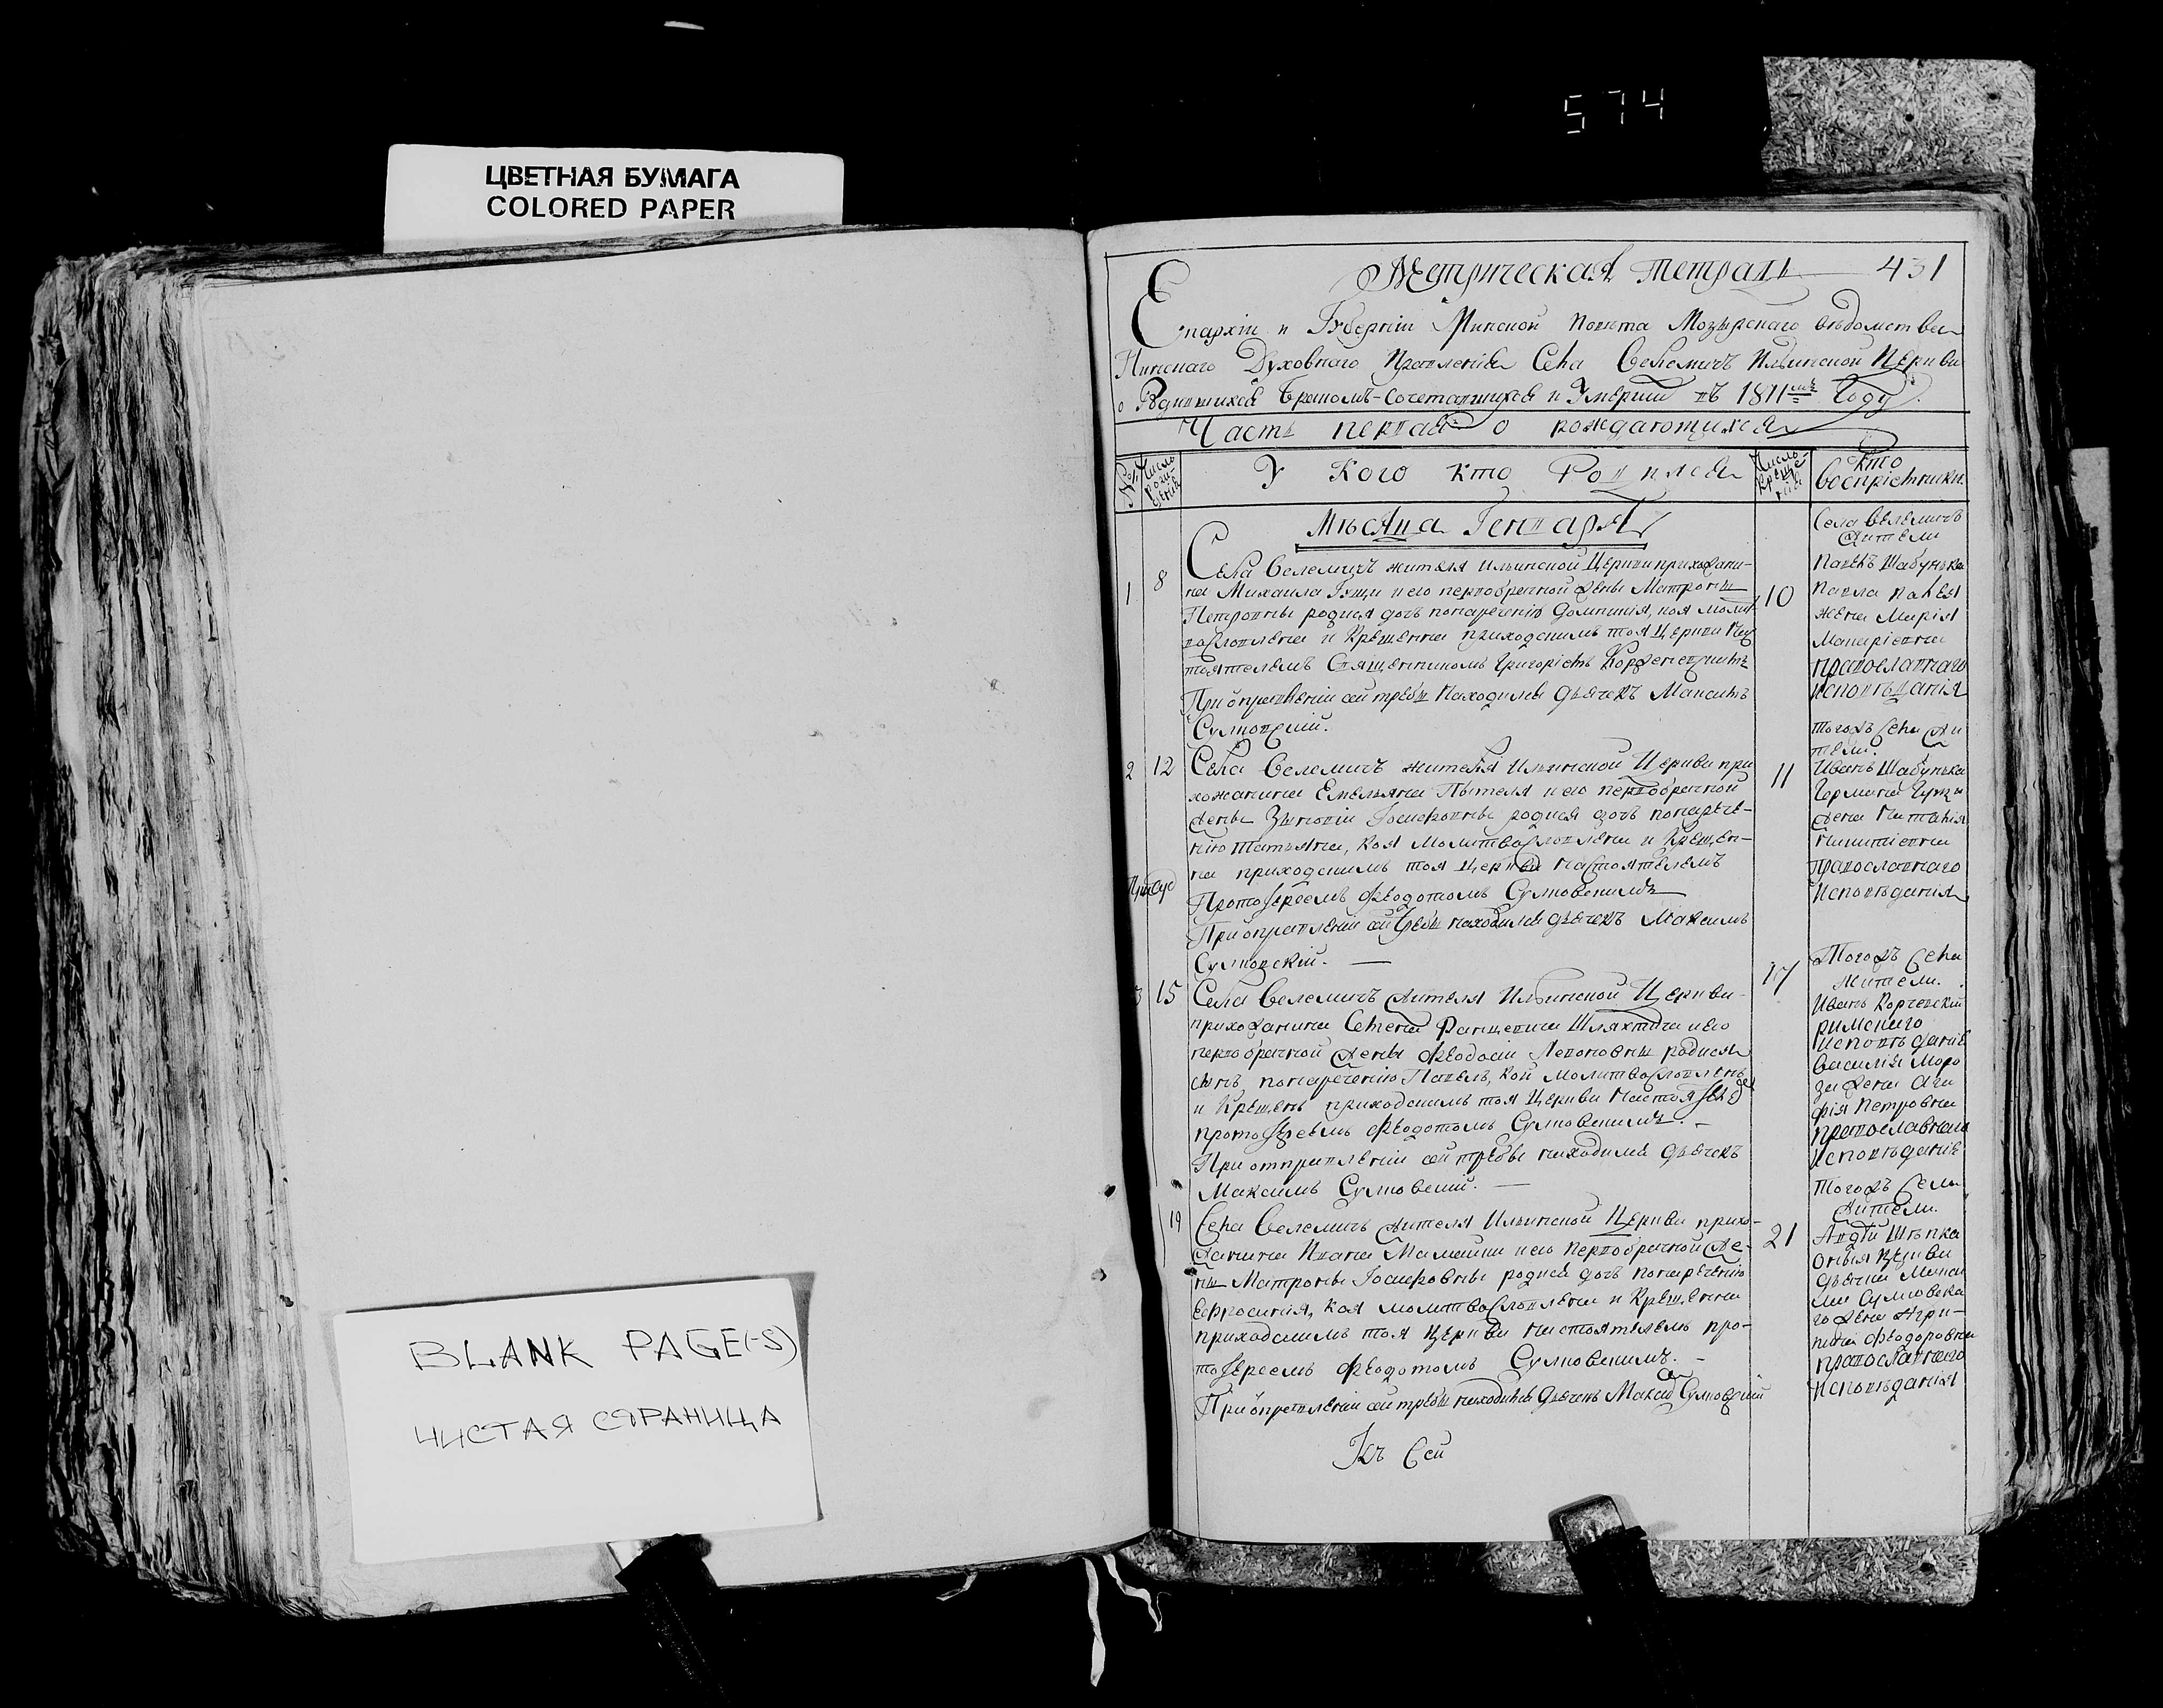 574
ЦВЕТНАЯ БУМАГА
COLORED PAPER
BLANK PAGE(-S)
ЧИСТАЯ СТРАНИЦА
Метрическая тетрадь 431
Епархіи и Губерніи Минской повѣта Мозырскаго вѣдомства
Пинскаго Духовнаго Правленія Села Велемичъ Ильинской Церкви
о Родившихся Бракомъ-Сочетавшихся и Умершихъ въ 1811мъ Году.
Часть первая о рождающихся
№ Число рожденія У кого кто Родился Число крещенія кто воспріемники.
Мѣсяца Генваря
1 8 10
Села Велемичъ жителя Ильинской Церкви прихожани-
на Михаила и его первобрачной жены Матроны
Петровны родися дочь понареченію Домникія, коя молит
вословлена и Крещенна приходскимъ тоя Церкви нас
тоятелемъ Священникомъ Григоріемъ
При оправленіи сей требы находился дьячекъ Максимъ
Сулковскій.
Села Велемичъ
жители
Павелъ Шабунька
Павла
жена Марія
православнаго
исповѣданія
2 12 11
Села Велемичъ жителя Ильинской Церкви при
хожанина Емельяна и его первобрачной
жены Зѣновіи Іосифовны родися дочь понарече-
нію Татьяна, коя Молитвословлена и Крещен-
на приходскимъ тоя Церкви настоятелемъ
Протоіереемъ Феодотомъ Сулковскимъ
При оправленіи сей требы находился дьячекъ Максимъ
Сулковскій. —
тогожъ села жи
тели.
Иванъ Шабунька
Германа
жена Наталія
православнаго
исповѣданія
3 15 17
Села Велемичъ жителя Ильинской Церкви
прихожанина Семена Ранцевича Шляхтича и его
первобрачной жены Феодосіи Леоновны родися
сынъ, понареченію Павелъ, кой Молитвословленъ
и Крещенъ приходскимъ тоя Церкви
протоіереемъ Феодотомъ Сулковскимъ. —
При отправленіи сей требы находился дьячекъ
Максимъ Сулковскій. —
Тогожъ Села
жители.
Иванъ Корчевскій
римскаго
исповѣданія
Василія Моро
за жена Ага
фія Петровна
православнаго
исповѣданія
19 21
Села Велемичъ жителя Ильинской Церкви прихо-
жанина Ивана и его первобрачной же-
ны Матроны Іосифовны родися дочь понареченію
Ефросинія, коя молитвословлена и Крещенна
приходскимъ тоя Церкви настоятелемъ про-
тоіереемъ Феодотомъ Сулковскимъ. —
При оправленіи сей требы находился Дьячекъ Максим Сулковскій
Тогожъ Села
жители.
дьячка Макси
ма Сулковска
го жена Агри-
пина Феодоровна
православнаго
исповѣданія
Къ Сей